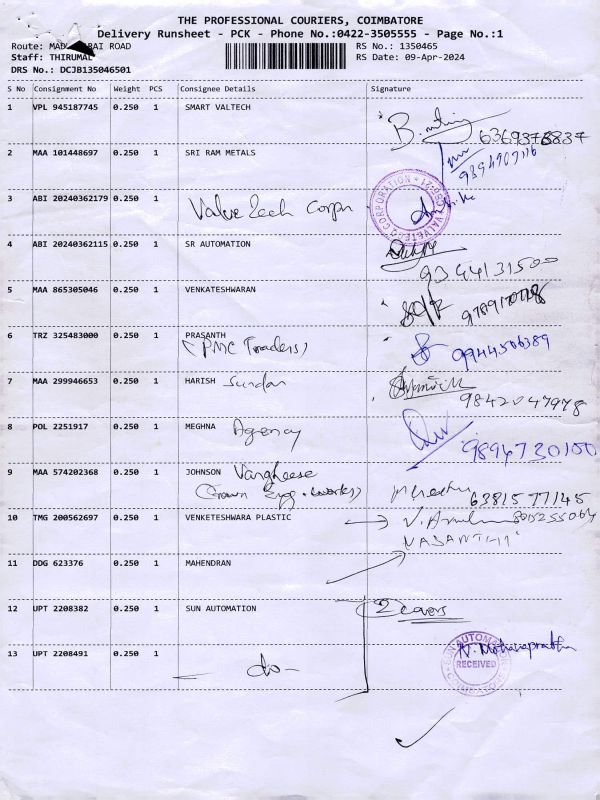 THE PROFESSIONAL COURIERS, COIMBATORE
Delivery Runsheet - PCK - Phone No.:0422-3505555 - Page No.:1
Route: ROAD RS No.: 1350465
Staff: THIRUMAL RS Date: 09-Apr-2024
DRS No.: DCJB135046501
S No Consignment No Weight PCS Consignee Details Signature
1 VPL 945187745 0.250 1 SMART VALTECH
6369378837
2 MAA 101448697 0.250 1 SRI RAM METALS
3 ABI 20240362179 0.250 1 Value Tech Corpn
4 ABI 20240362115 0.250 1 SR AUTOMATION
9344131500
5 MAA 865305046 0.250 1 VENKATESHWARAN
6 TRZ 325483000 0.250 1 PRASANTH
(PMC Traders) 9944506389
7 MAA 299946653 0.250 1 HARISH Sundar
9842047978
8 POL 2251917 0.250 1 MEGHNA Agency
9894730100
9 MAA 574202368 0.250 1 JOHNSON Varghese
(Crown Eng. works) 6381577145
10 TMG 200562697 0.250 1 VENKETESHWARA PLASTIC
11 DDG 623376 0.250 1 MAHENDRAN
12 UPT 2208382 0.250 1 SUN AUTOMATION 2 covers
SUN AUTOMATION
RECEIVED
COIMBATORE
13 UPT 2208491 0.250 1 -do-